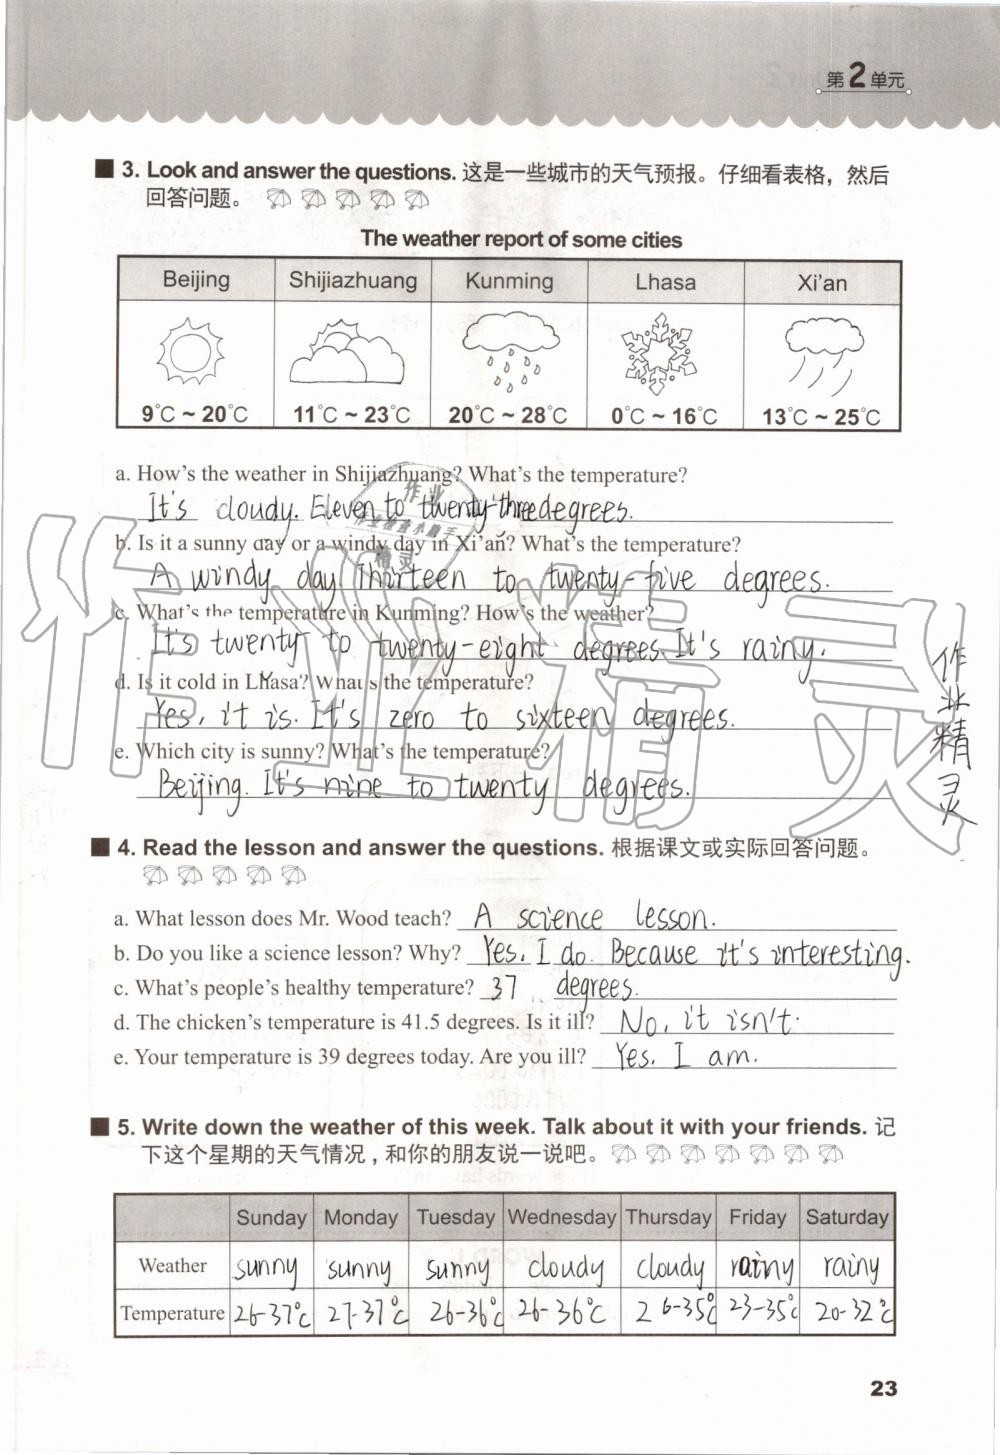 第2单元
3. Look and answer the questions. 这是一些城市的天气预报。仔细看表格，然后
回答问题。
The weather report of some cities
Beijing Shijiazhuang Kunming Lhasa Xi'an
9℃ ~ 20℃ 11℃ ~ 23℃ 20℃ ~ 28℃ 0℃ ~ 16℃ 13℃ ~ 25℃
a. How's the weather in Shijiazhuang? What's the temperature?
It's cloudy. Eleven to twenty-three degrees.
b. Is it a sunny day or a windy day in Xi'an? What's the temperature?
A windy day. Thirteen to twenty-five degrees.
c. What's the temperature in Kunming? How's the weather?
It's twenty to twenty-eight degrees. It's rainy.
d. Is it cold in Lhasa? What's the temperature?
Yes, it is. It's zero to sixteen degrees.
e. Which city is sunny? What's the temperature?
Beijing. It's nine to twenty degrees.
作业精灵
作业
作业检查小助手
精灵
作业精灵
4. Read the lesson and answer the questions. 根据课文或实际回答问题。
a. What lesson does Mr. Wood teach? A science lesson.
b. Do you like a science lesson? Why? Yes, I do. Because it's interesting.
c. What's people's healthy temperature? 37 degrees.
d. The chicken's temperature is 41.5 degrees. Is it ill? No, it isn't.
e. Your temperature is 39 degrees today. Are you ill? Yes, I am.
5. Write down the weather of this week. Talk about it with your friends. 记
下这个星期的天气情况，和你的朋友说一说吧。
Sunday Monday Tuesday Wednesday Thursday Friday Saturday
Weather sunny sunny sunny cloudy cloudy rainy rainy
Temperature 26-37℃ 27-37℃ 26-36℃ 26-36℃ 26-35℃ 23-35℃ 20-32℃
23